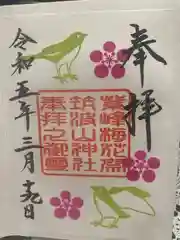 奉拝
紫峰梅花祭
筑波山神社
奉拜之御璽
令和五年三月十九日